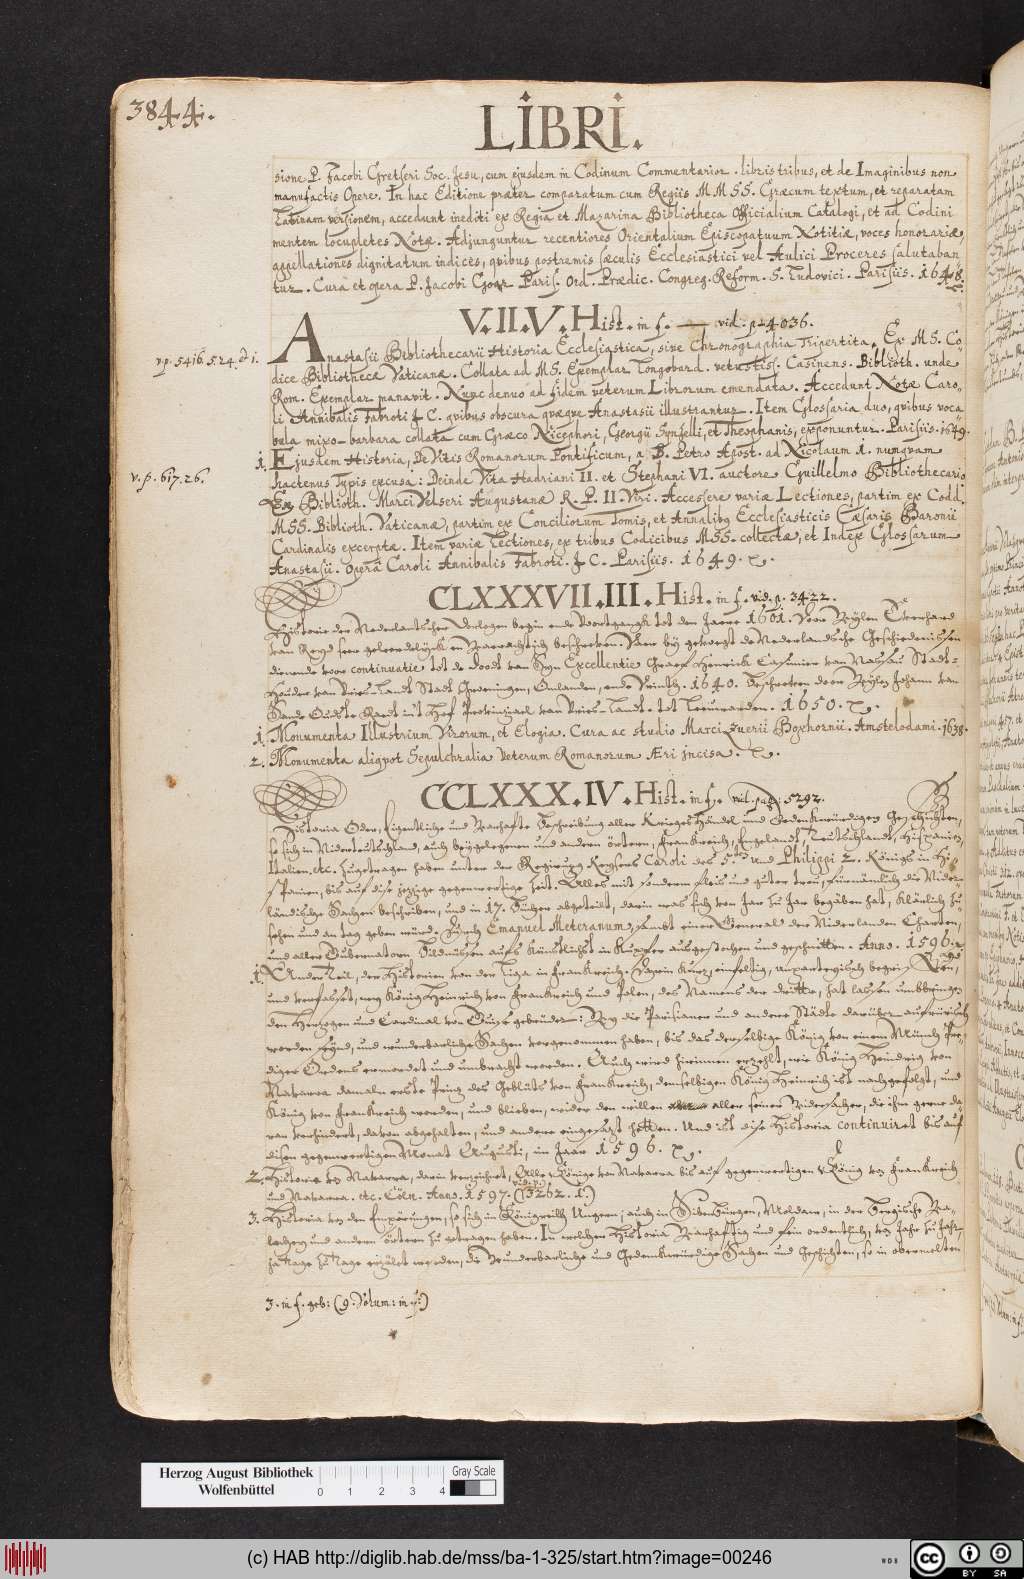 3844.
LIBRI.
sione P. Jacobi Gretseri Soc. Jesu, cum ejusdem in Codinum Commentarior. libris tribus, et de Imaginibus non
manufactis Opere. In hac Editione præter comparatum cum Regiis MMSS. Græcum textum, et reparatam
Latinam versionem, accedunt inediti ex Regia et Mazarina Bibliotheca Officialium Catalogi, et ad Codini
mentem locupletes Notæ. Adjunguntur recentiores Orientalium Episcopatuum Notitiæ, voces honorariæ,
appellationes dignitatum indices, qvibus postremis sæculis Ecclesiastici vel Aulici Proceres salutaban
tur. Cura et opera P. Jacobi Goar Paris. Ord. Prædic. Congreg. Reform. S. Ludovici. Parisiis. 1648.
V.II.V. Hist. in f. — vid. p. 4036.
vp. 5416. 5. 24. d 1.
Anastasii Bibliothecarii Historia Ecclesiastica, sive Chronographia Tripertita. Ex MS. Co
dice Bibliothecæ Vaticanæ. Collata ad MS. Exemplar Longobard. vetustiss. Casinens. Biblioth. unde
Rom. Exemplar manavit. Nunc denuo ad fidem veterum Librorum emendata. Accedunt Notæ Caro,
li Annibalis Fabroti JC. qvibus obscura qvæqve Anastasii illustrantur. Item Glossaria duo, qvibus voca
bula mixo-barbara collata cum Græco Nicephori, Georgii Syncelli, et Theophanis, exponuntur. Parisiis. 1649.
1. Ejusdem Historia, De Vitis Romanorum Pontificum, a B. Petro Apost. ad Nicolaum I. nunqvam
v. p. 617. 26.
hactenus Typis excusa: Deinde Vita Hadriani II. et Stephani VI. auctore Guillelmo Bibliothecario
Ex Biblioth. Marci Velseri Augustanæ R. P. II Viri. Accessere variæ Lectiones, partim ex Codd.
MSS. Biblioth. Vaticanæ, partim ex Conciliorum Tomis, et Annalibg Ecclesiasticis Cæsaris Baronii
Cardinalis excerptæ. Item variæ Lectiones, ex tribus Codicibus MSS. collectæ, et Index Glossarum
Anastasii. Operâ Caroli Annibalis Fabroti. JC. Parisiis. 1649.
CLXXXVII.III. Hist. in f. vid. p. 3422.
Historie der Nederlantscher Oorlogen begin ende Voortgangh tot den Jaere 1601. Door Wylen Everhard
van Reyd seer geloovelyck en Waerachtich beschreven. Daer by gevoegt de Nederlandsche Geschiedenissen
dienende voor continuatie tot de doodt van Syn Excellentie Graef Henrick Casimier van Nassau Stadt-
Houder van Vries-Landt Stadt Groeningen, Omlanden, ende Drenth. 1640. Beschreven door Wylen Johann van
Sande Oudste Raedt in't Hof Provinciael van Vries-Landt. Tot Leeuwarden. 1650.
1. Monumenta Illustrium Virorum, et Elogia. Cura ac studio Marci Zuerii Boxhornii. Amstelodami. 1638.
2. Monumenta aliqvot Sepulchralia Veterum Romanorum Æri incisa.
CCLXXX.IV. Hist. in f. vid. pag: 5292.
Historia Oder, Eigentliche und Warhafte Beschreibung aller Krieges Händel und Gedenckwürdigen Geschichten,
so sich in Niderteutschland, auch beygelegenen und andern örtern, Franckreich, Engelandt, Teutschlandt, Hispanien,
Italien. etc. zugetragen haben unter der Regirung Keysers Caroli des 5.ten und Philippi 2. Königs in Hi-
spanien, bis auf dise jezige gegenwertige zeit. Alles mit sonderm fleis und guter trew, fürnämlich die Nider-
ländische Sachen beschriben, und in 17. Bücher abgeteilt, darin was sich von Jar zu Jar begäben hat, Klärlich zu
sehen und an tag geben würd. Durch Emanuel Meteranum, sambt einer General der Niderlanden Charten,
und aller Gubernatorn Bildnüssen aufs künstlichst in Kupffer ausgestochen und geschnitten. Anno. 1596.
1. Ander Teil, der Historien von der Liga in Franckreich. Darin Kurz, einfeltig, unparteyisch begriffen,
und verfasset, weg König Heinrich von Franckreich und Polen, des Namens der dritte, hat lassen umbbringen
den Herzogen und Cardinal von Guise gebrüder: Weg die Parisianer und andere Städte darüber aufrürisch
worden seynd, und wunderbarliche Sachen vorgenommen haben, bis das derselbige König von einem Münch Pre-
diger Ordens ermordet und umbracht worden. Auch wird hierinnen erzehlt, wie König Heindrig von
Navarra damaln erste Prinz des Geblüts von Franckreich, demselbigen König Heinrich ist nachgefolgt, und
König von Franckreich worden, und blieben, wider den willen aller seiner Widersacher, die ihn gerne da-
van verhindert, davon abgehalten, und andere eingesezt hetten. Und ist dise Historia continuiret bis auf
disen gegenwertigen Monat Augusti, im Jaar 1596.
2. Historia von Navarra, darin verzeichnet, Alle Könige von Navarra bis auf gegenwertigen König von Franckreich
und Navarra. etc. Cöln. Anno. 1597. (vid. p. 3262. 1.)
3. Historia von den Empörungen, so sich in Königreich Ungern, auch in Sibenbürgen, Moldaw, in der Bergische Wa-
lachey und andern örtern zu getragen haben. In welcher Historia Warhafftig und fein ordentlich, von Jahr zu Jahr
ja tage zu tage erzält werden, die Wunderbarliche und Gedenckwürdige Sachen und Geschichten, so in obermelten
3. in f. geb: (9. Volum: in f.)
Herzog August Bibliothek
Wolfenbüttel
0 1 2 3 4
Gray Scale
(c) HAB http://diglib.hab.de/mss/ba-1-325/start.htm?image=00246
WDB
cc BY SA